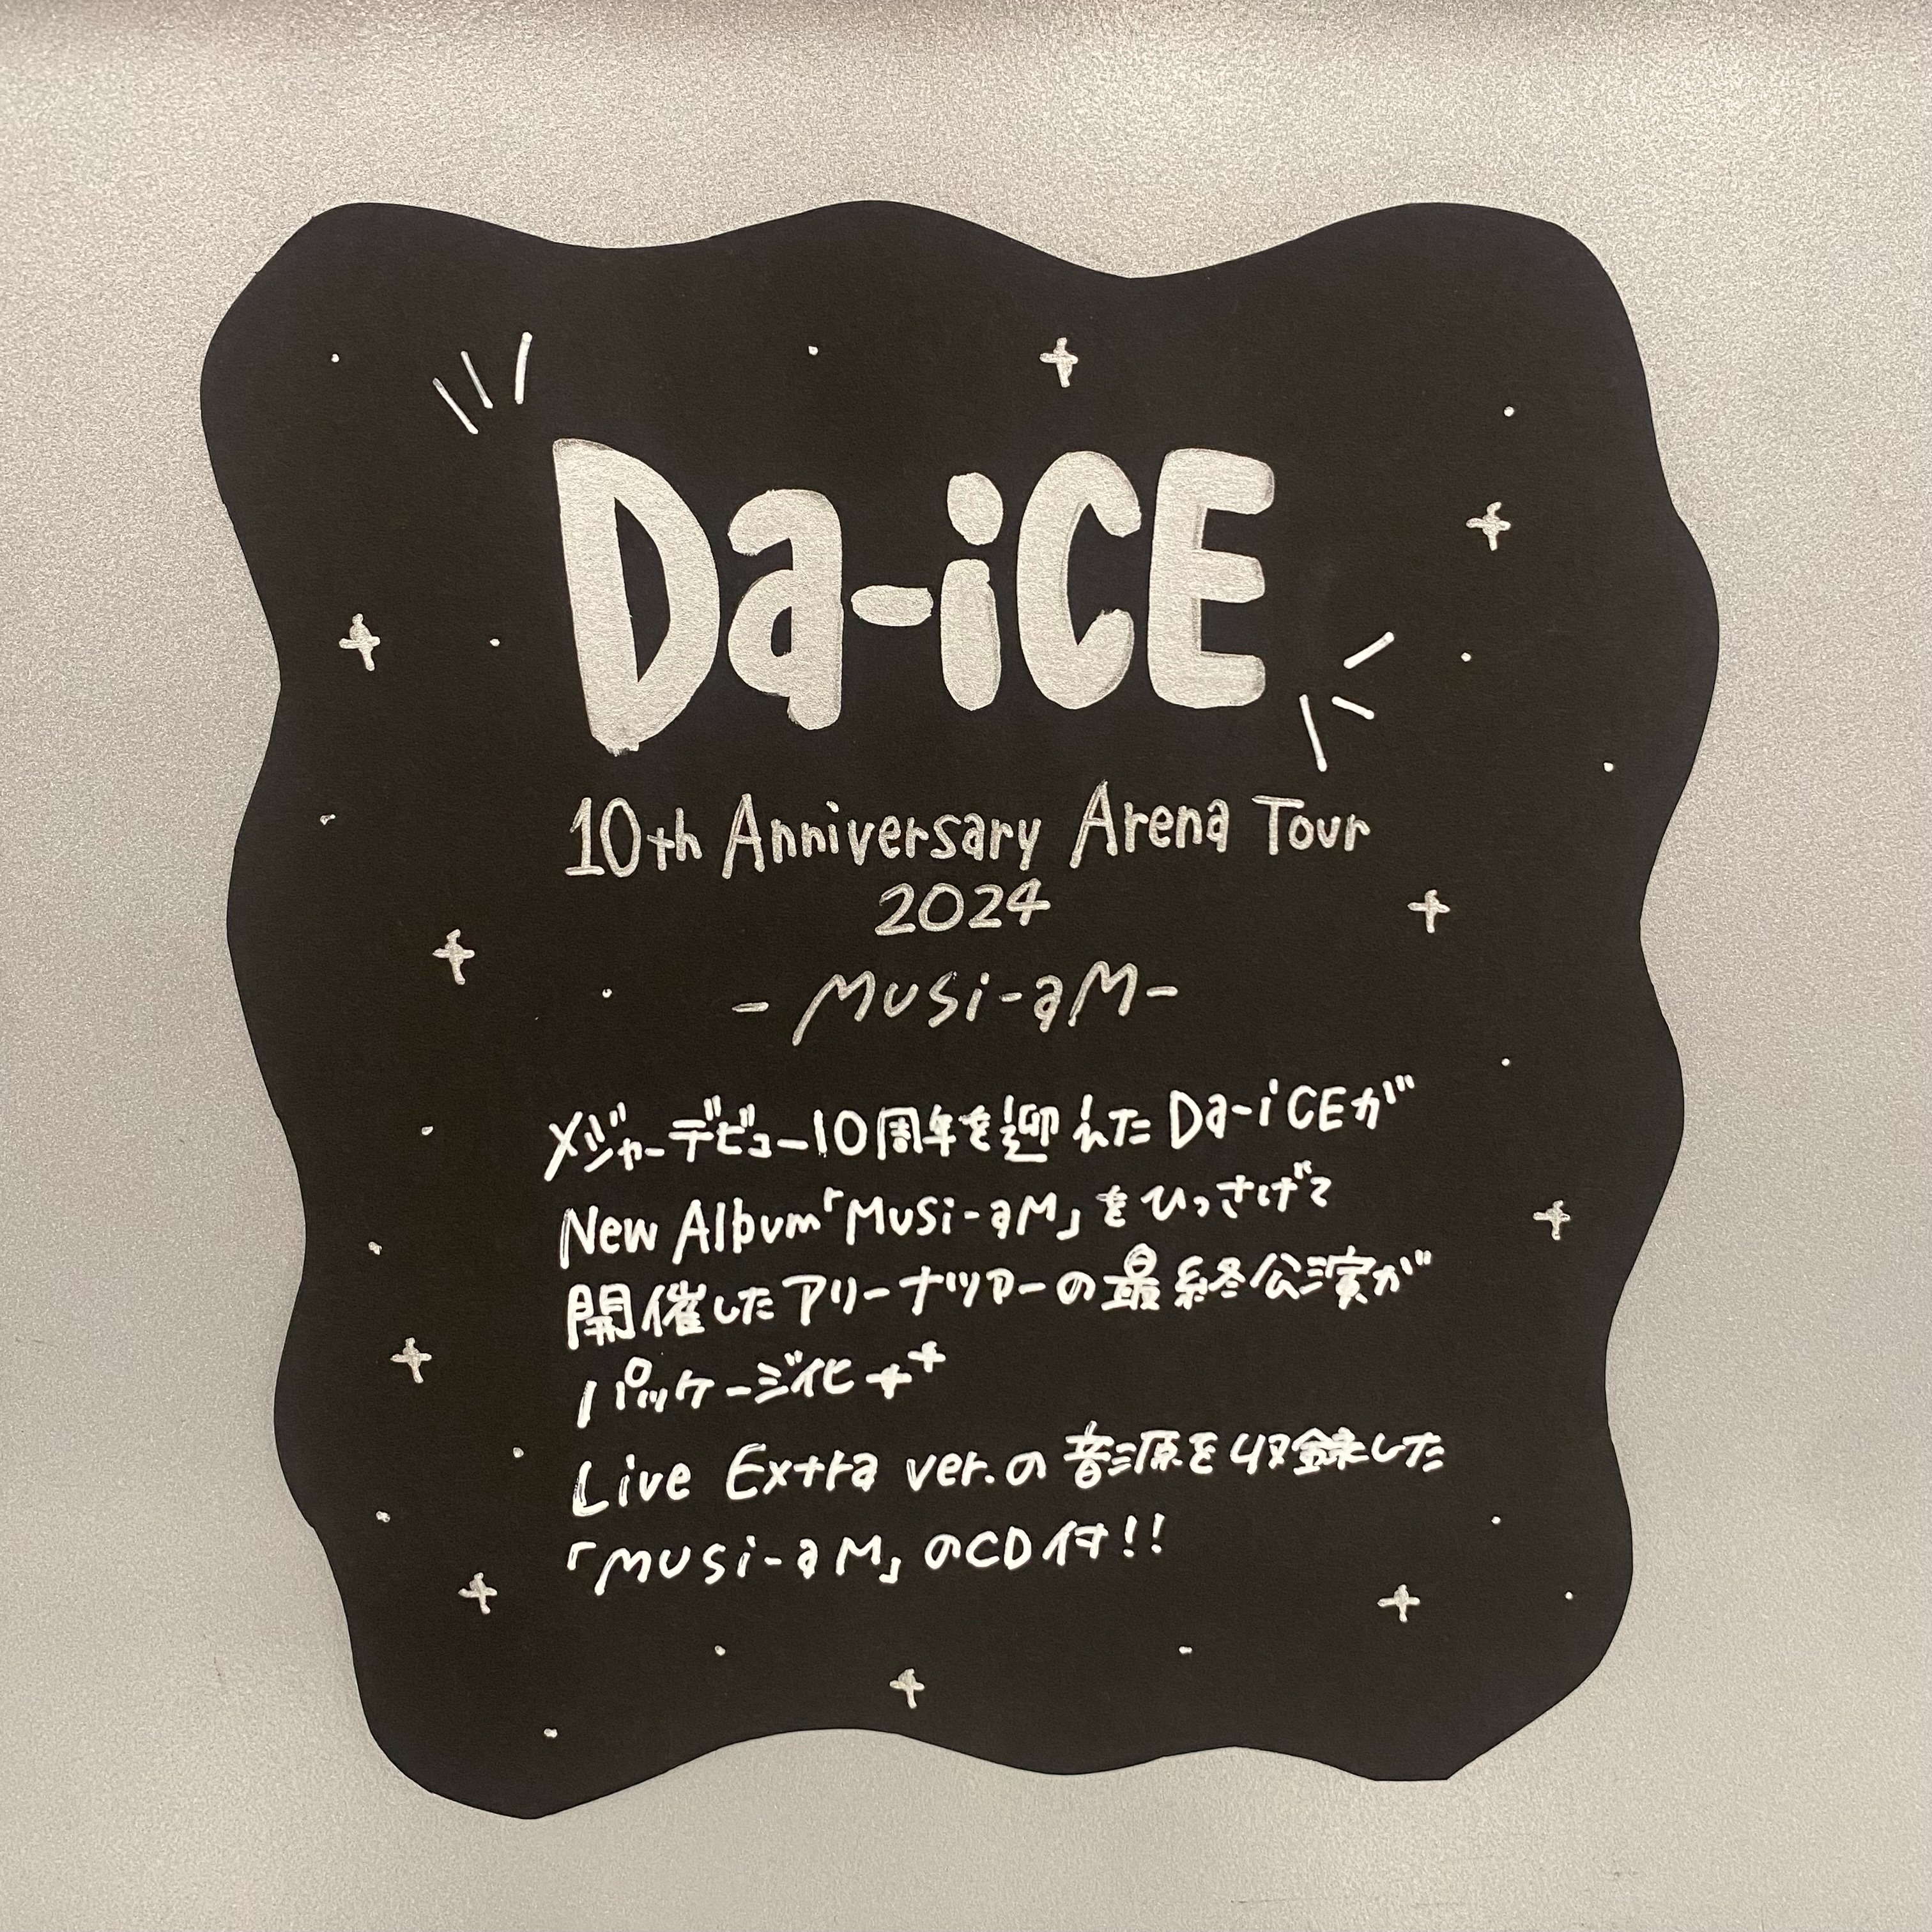 Da-iCE
10th Anniversary Arena Tour
2024
- MUSi-aM-
メジャーデビュー10周年を迎えたDa-iCEが
New Album「MUSi-aM」をひっさげて
開催したアリーナツアーの最終公演が
パッケージ化
Live Extra ver.の音源を収録した
「MUSi-aM」のCD付!!